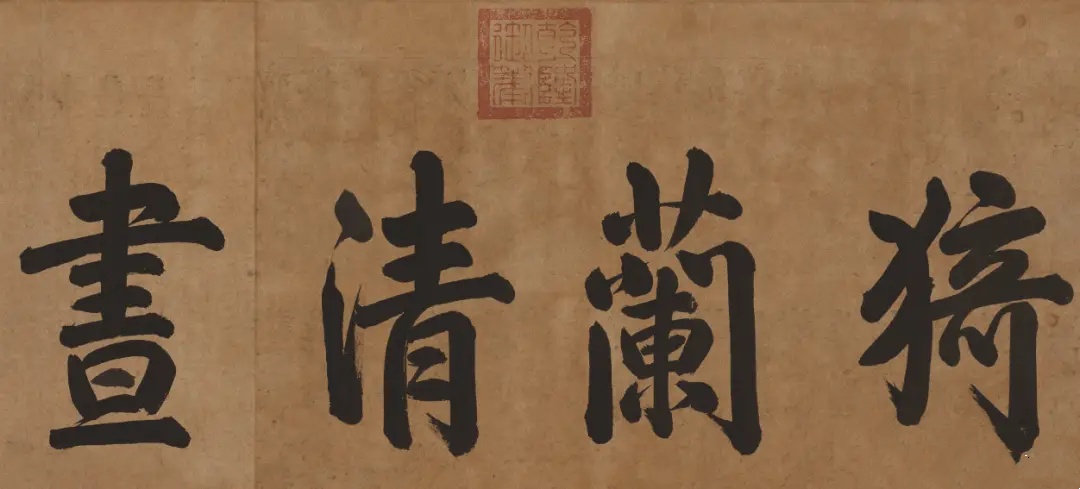 乾隆御筆
猗蘭清晝